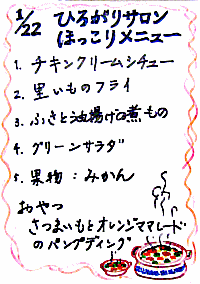 1/22 ひろがりサロン
ほっこりメニュー
1. チキンクリームシチュー
2. 里いものフライ
3. ふきと油揚げの煮もの
4. グリーンサラダ
5. 果物：みかん
おやつ
さつまいもとオレンジママレード
のパンプディング